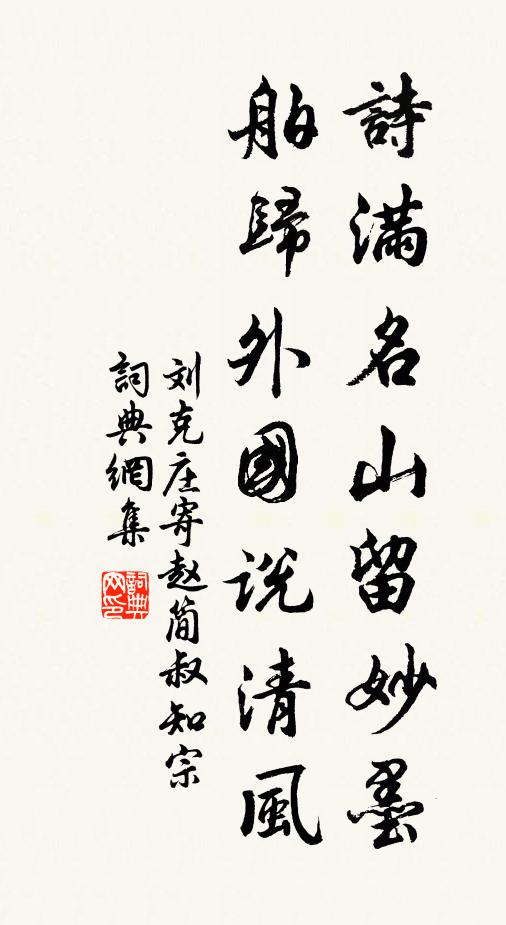 詩滿名山留妙墨
舶歸外國説清風
刘克庄寄赵簡叔知宗
詞典網集
詞典网印